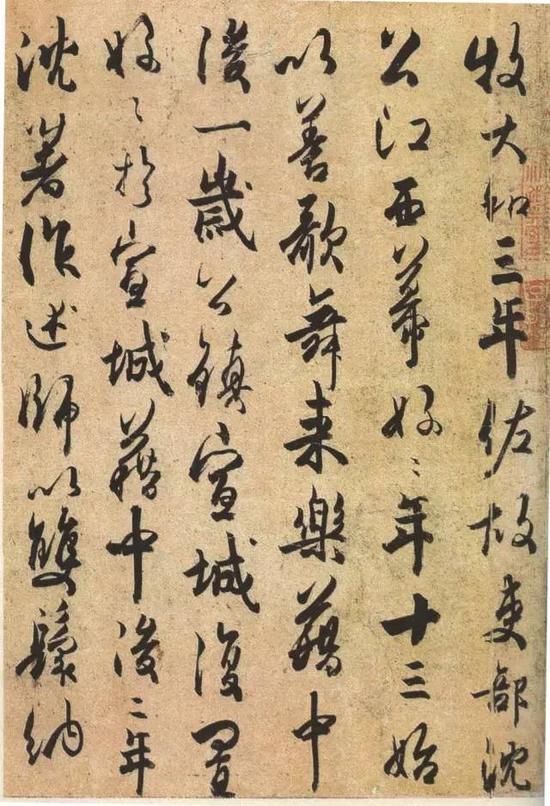 牧大和三年佐故吏部沈
公江西幕好〻年十三始
以善歌舞来樂籍中
後一歳公鎮宣城復置
好〻於宣城籍中後二年
沈著作述師以雙鬟納